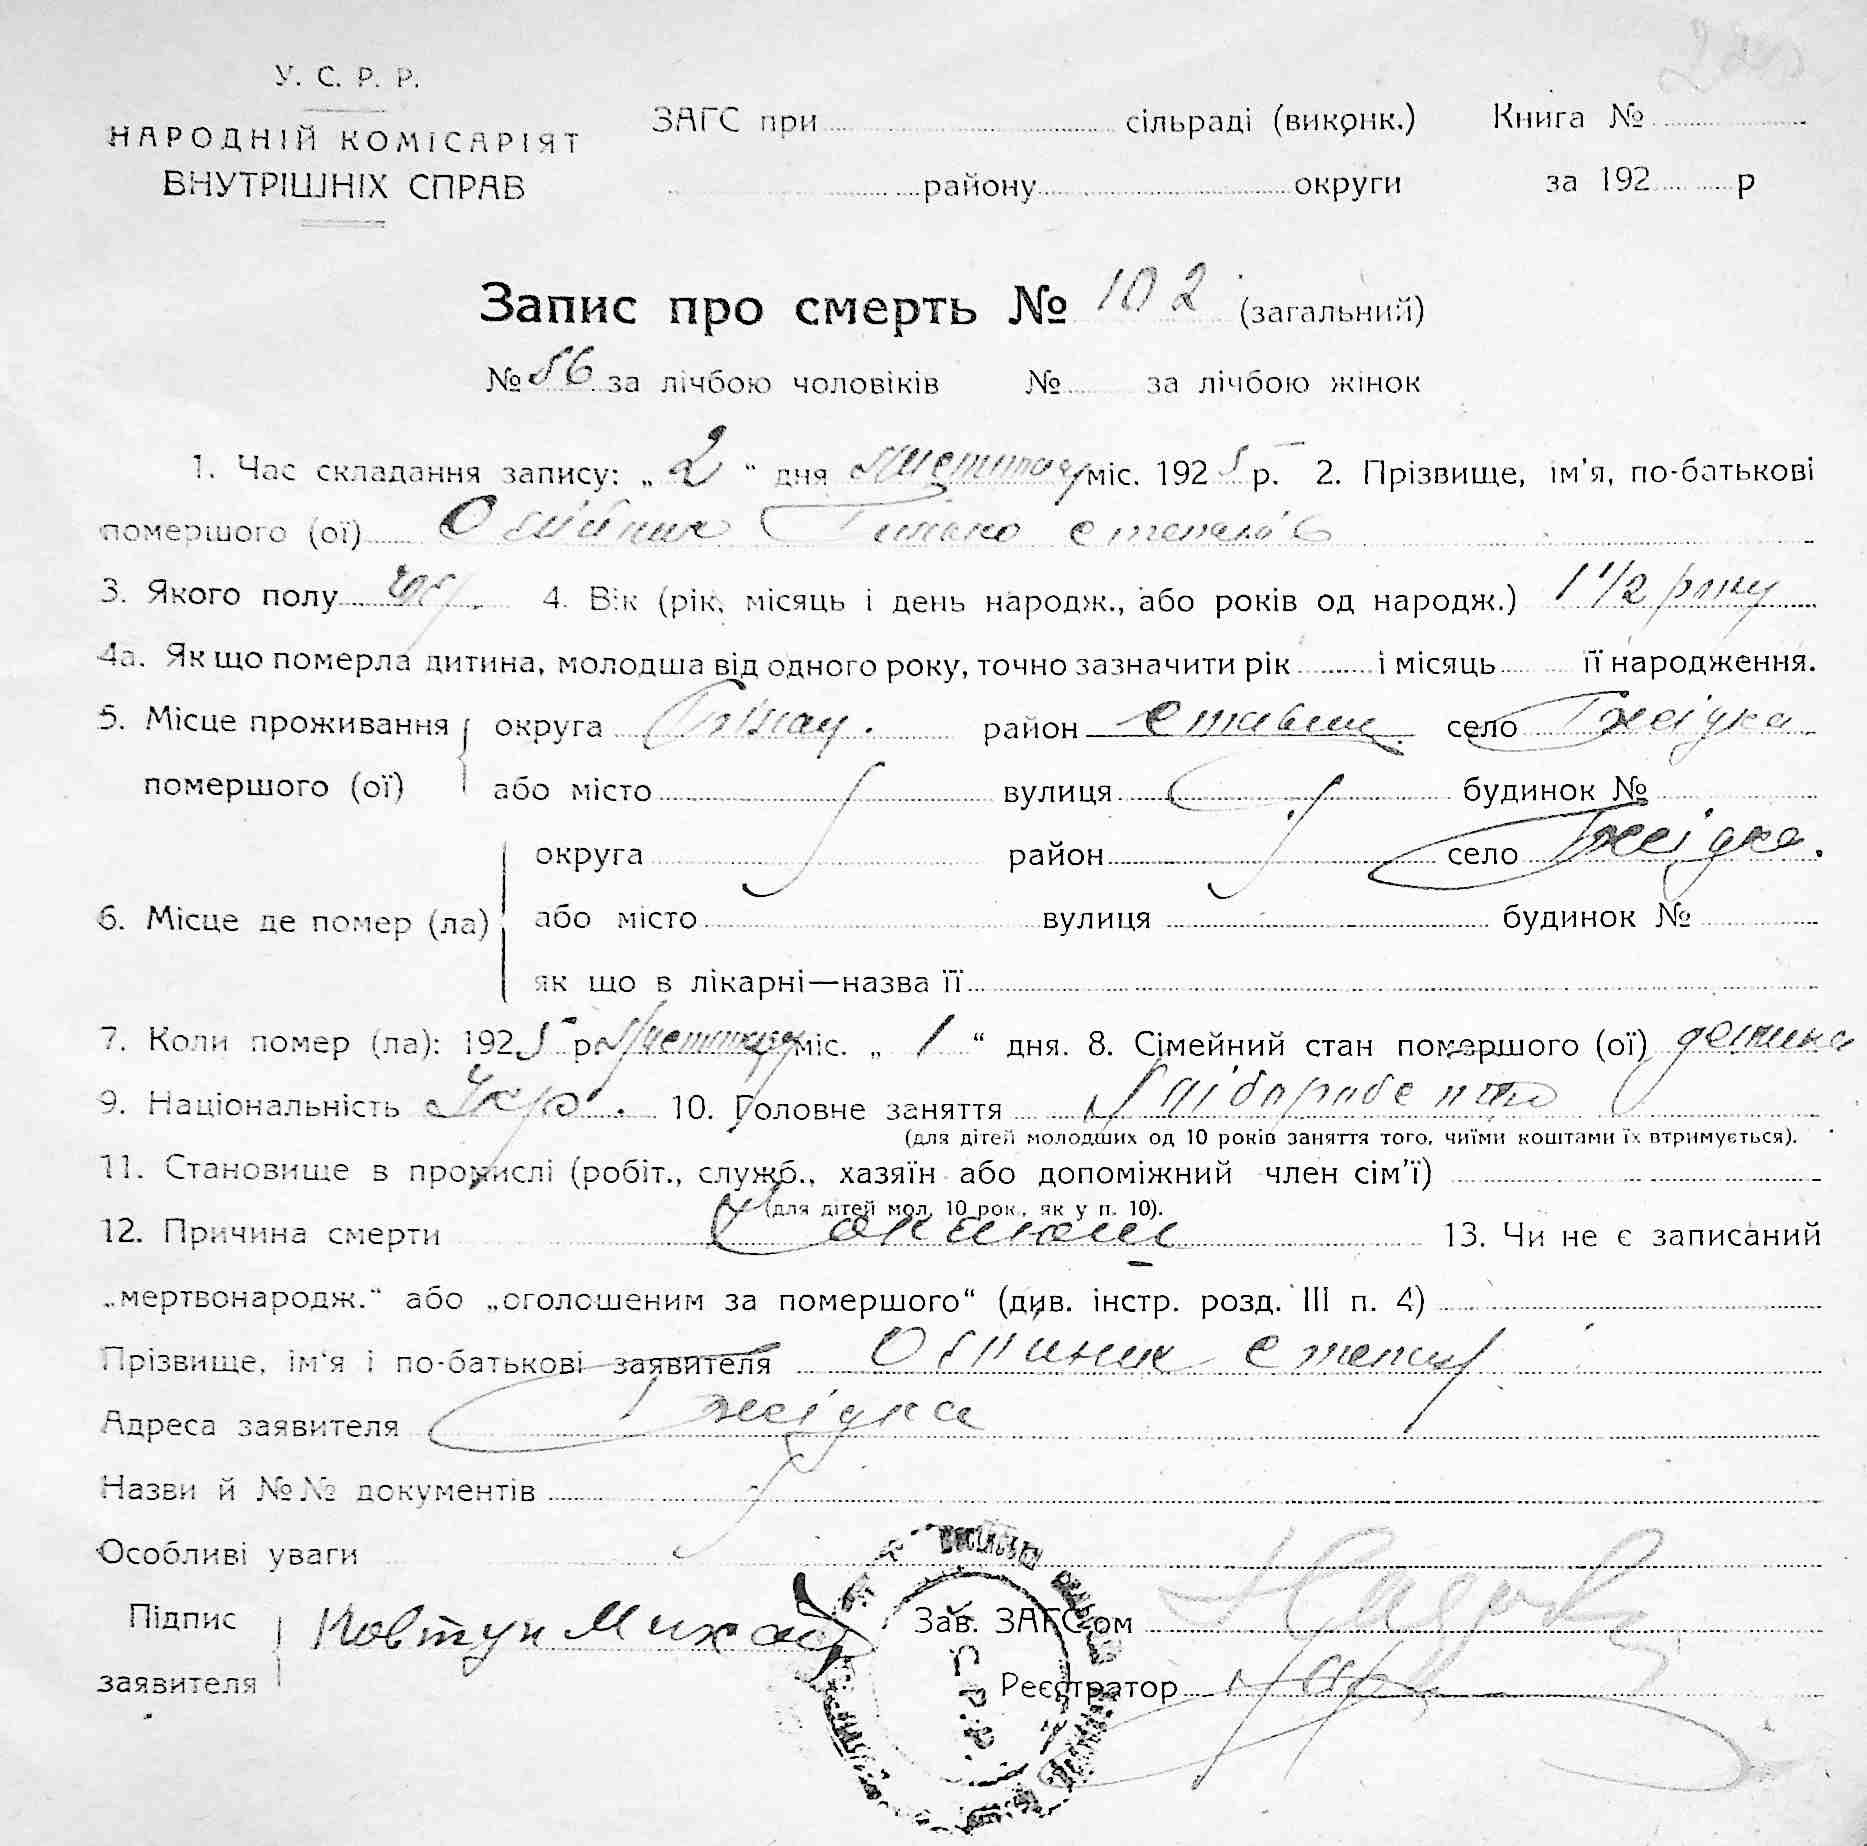 У. С. Р. Р.
НАРОДНІЙ КОМІСАРІЯТ
ВНУТРІШНІХ СПРАВ
ЗАГС при сільраді (виконк.) Книга №
району округи за 192 р
Запис про смерть № 102 (загальний)
№ 56 за лічбою чоловіків № за лічбою жінок
1. Час складання запису: „ 2 “ дня листопад міс. 1925 р. 2. Прізвище, ім'я, по-батькові
помершого (ої) Олійник Степанів
3. Якого полу чол. 4. Вік (рік, місяць і день народж., або років од народж.) 1 1/2 року
4а. Як що померла дитина, молодша від одного року, точно зазначити рік і місяць її народження.
5. Місце проживання округа район Ставищ. село Гжідка
помершого (ої) або місто вулиця будинок №
округа район село Гжідка.
6. Місце де помер (ла) або місто вулиця будинок №
як що в лікарні—назва її
7. Коли помер (ла): 1925 р. листопад міс. „ 1 “ дня. 8. Сімейний стан помершого (ої) детина
9. Національність Укр. 10. Головне заняття Хліборобство
(для дітей молодших од 10 років заняття того, чиїми коштами їх втримується).
11. Становище в промислі (робіт., служб., хазяїн або допоміжний член сім'ї)
(для дітей мол. 10 рок., як у п. 10).
12. Причина смерти Коклюш 13. Чи не є записаний
„мертвонародж.“ або „оголошеним за помершого“ (див. інстр. розд. III п. 4)
Прізвище, ім'я і по-батькові заявителя Олійник Степан
Адреса заявителя Гжідка
Назви й №№ документів
Особливі уваги
Підпис Ковтун Михай Зав. ЗАГС'ом
заявителя Реєстратор
У.С.Р.Р.